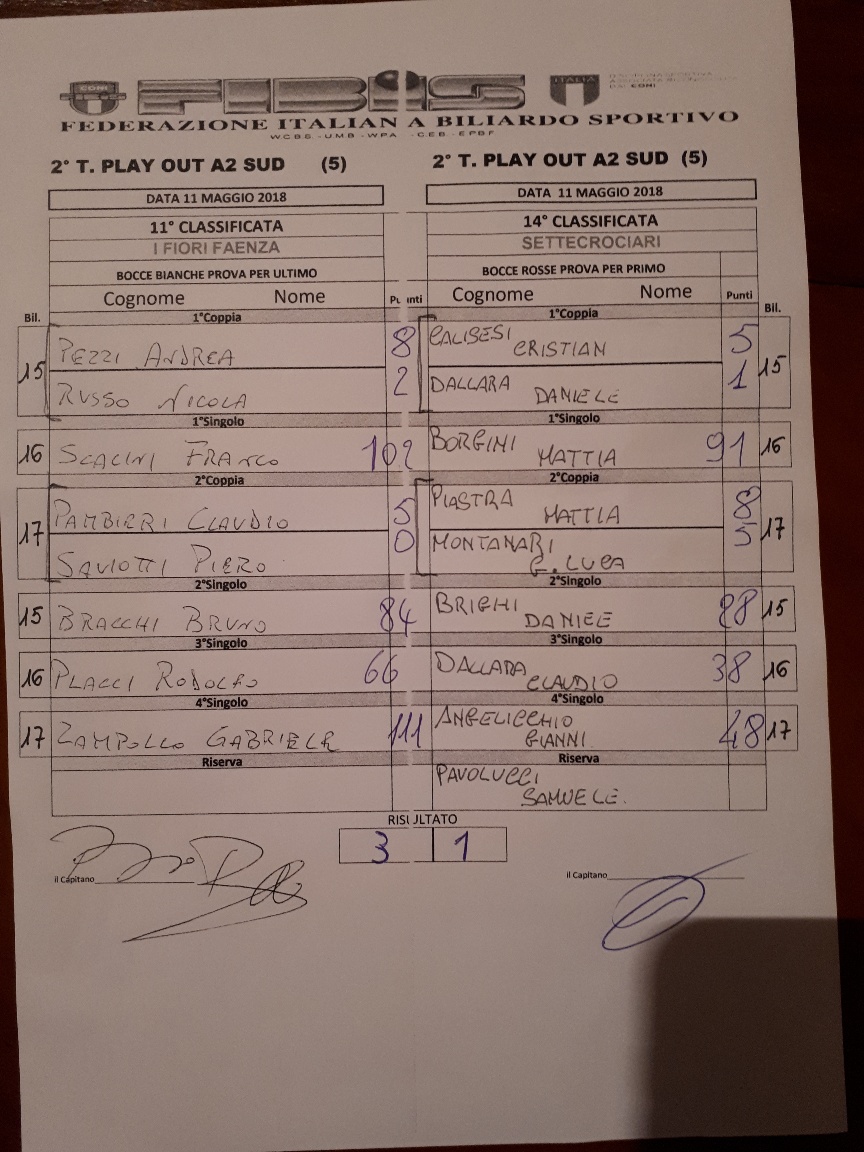 CONI
FIBiS
ITALIA
FEDERAZIONE ITALIANA BILIARDO SPORTIVO
WCBS - UMB - WPA - CEB - EPBF
2° T. PLAY OUT A2 SUD (5) 2° T. PLAY OUT A2 SUD (5)
DATA 11 MAGGIO 2018 DATA 11 MAGGIO 2018
11° CLASSIFICATA 14° CLASSIFICATA
I FIORI FAENZA SETTECROCIARI
BOCCE BIANCHE PROVA PER ULTIMO BOCCE ROSSE PROVA PER PRIMO
Cognome Nome Punti Cognome Nome Punti
Bil. 1°Coppia 1°Coppia Bil.
15 PEZZI ANDREA 8 CALISESI CRISTIAN 5 15
RUSSO NICOLA 2 DALLARA DANIELE 1
1°Singolo 1°Singolo
16 SCALINI FRANCO 102 BORGINI MATTIA 91 16
2°Coppia 2°Coppia
17 PAMBIERI CLAUDIO 5 PIASTRA MATTIA 8 17
SAVIOTTI PIERO 0 MONTANARI G. LUCA 5
2°Singolo 2°Singolo
15 BRACCHI BRUNO 84 BRIGHI DANIEE 88 15
3°Singolo 3°Singolo
16 PLACCI RODOLFO 66 DALLARA CLAUDIO 38 16
4°Singolo 4°Singolo
17 ZAMPOLLO GABRIELE 111 ANGELICCHIO GIANNI 48 17
Riserva Riserva
PAVOLUCCI SAMUELE.
RISULTATO
3 1
il Capitano il Capitano